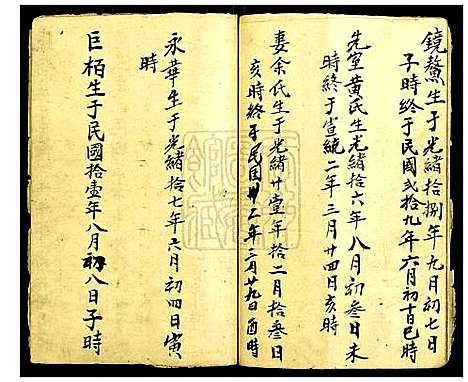 鏡鰲生于光緒拾捌年九月初七日
子時終于民國弍拾九年六月初十日巳時
先室黄氏生光緒拾六年八月初叁日未
時終于宣統二年三月廿四日亥時
妻余氏生于光緒廿壹年拾二月拾叁日
亥時終于民国卅二年三月廿九日酉時
永華生于光緒拾七年六月初四日寅
時
巨栢生于民國拾壹年八月初八日子時